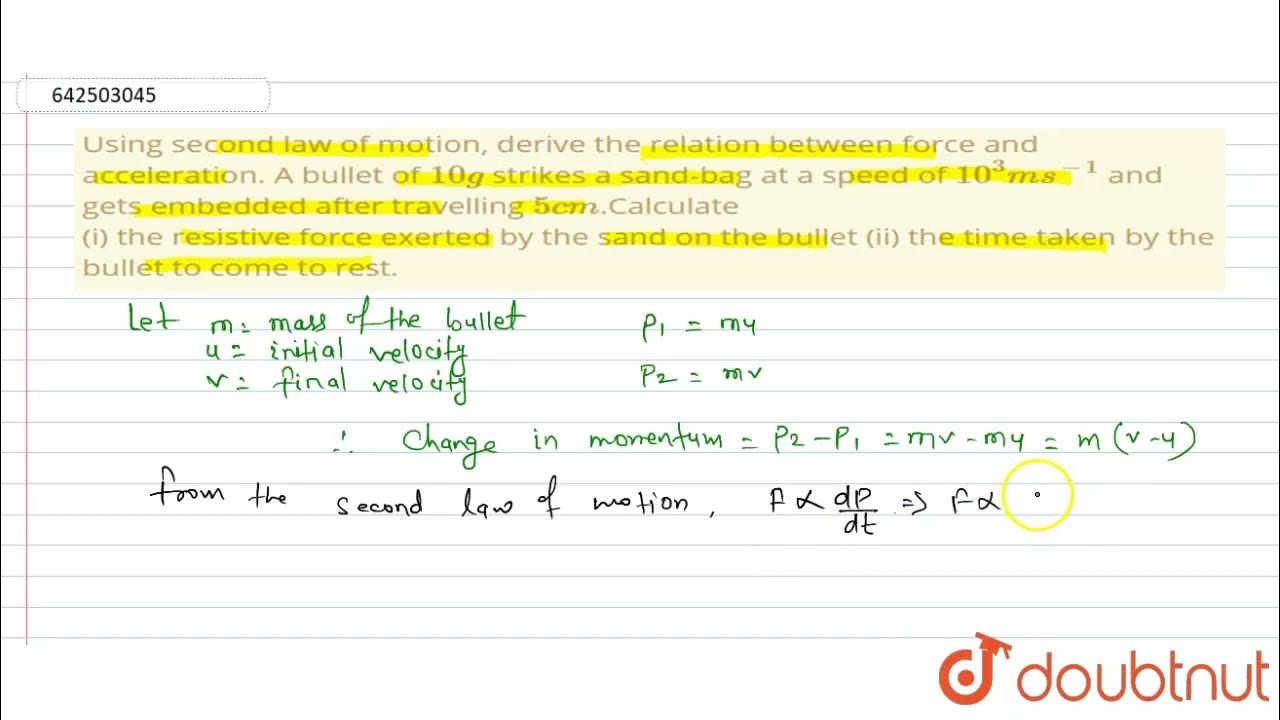 642503045
Using second law of motion, derive the relation between force and
acceleration. A bullet of 10g strikes a sand-bag at a speed of 10³ms⁻¹ and
gets embedded after travelling 5cm.Calculate
(i) the resistive force exerted by the sand on the bullet (ii) the time taken by the
bullet to come to rest.
Let m = mass of the bullet P₁ = mu
u = initial velocity
v = final velocity P₂ = mv
∴ Change in momentum = P₂ - P₁ = mv - mu = m (v-u)
from the second law of motion, F ∝ dP/dt ⇒ F ∝
doubtnut